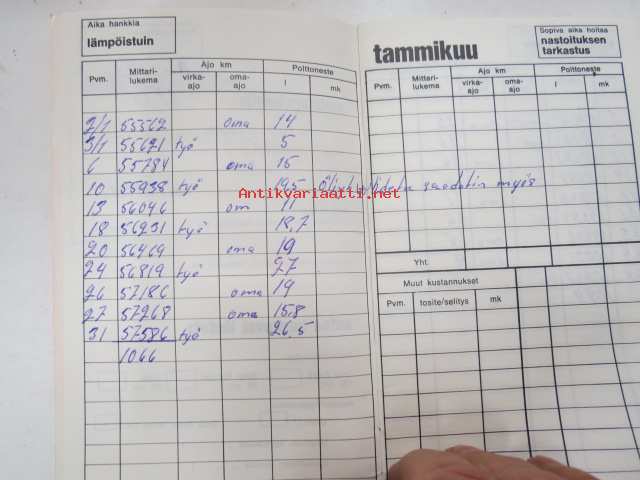 Aika hankkia
lämpöistuin
Pvm. Mittari-lukema Ajo km virka-ajo oma-ajo Polttoneste l mk
2/1 55562 oma 14
3/1 55621 työ 5
6 55784 oma 15
10 55938 työ 19,5 saadatin myös
13 56046 om 11
18 56231 työ 18,7
20 56469 oma 19
24 56819 työ 27
26 57186 oma 19
27 57268 oma 15,8
31 57586 työ 26,5
1066
Antikvariaatti.net
tammikuu
Sopiva aika hoitaa
nastoituksen
tarkastus
Pvm. Mittari-lukema Ajo km virka-ajo oma-ajo Polttoneste l mk
Yht.
Muut kustannukset
Pvm. tosite/selitys mk